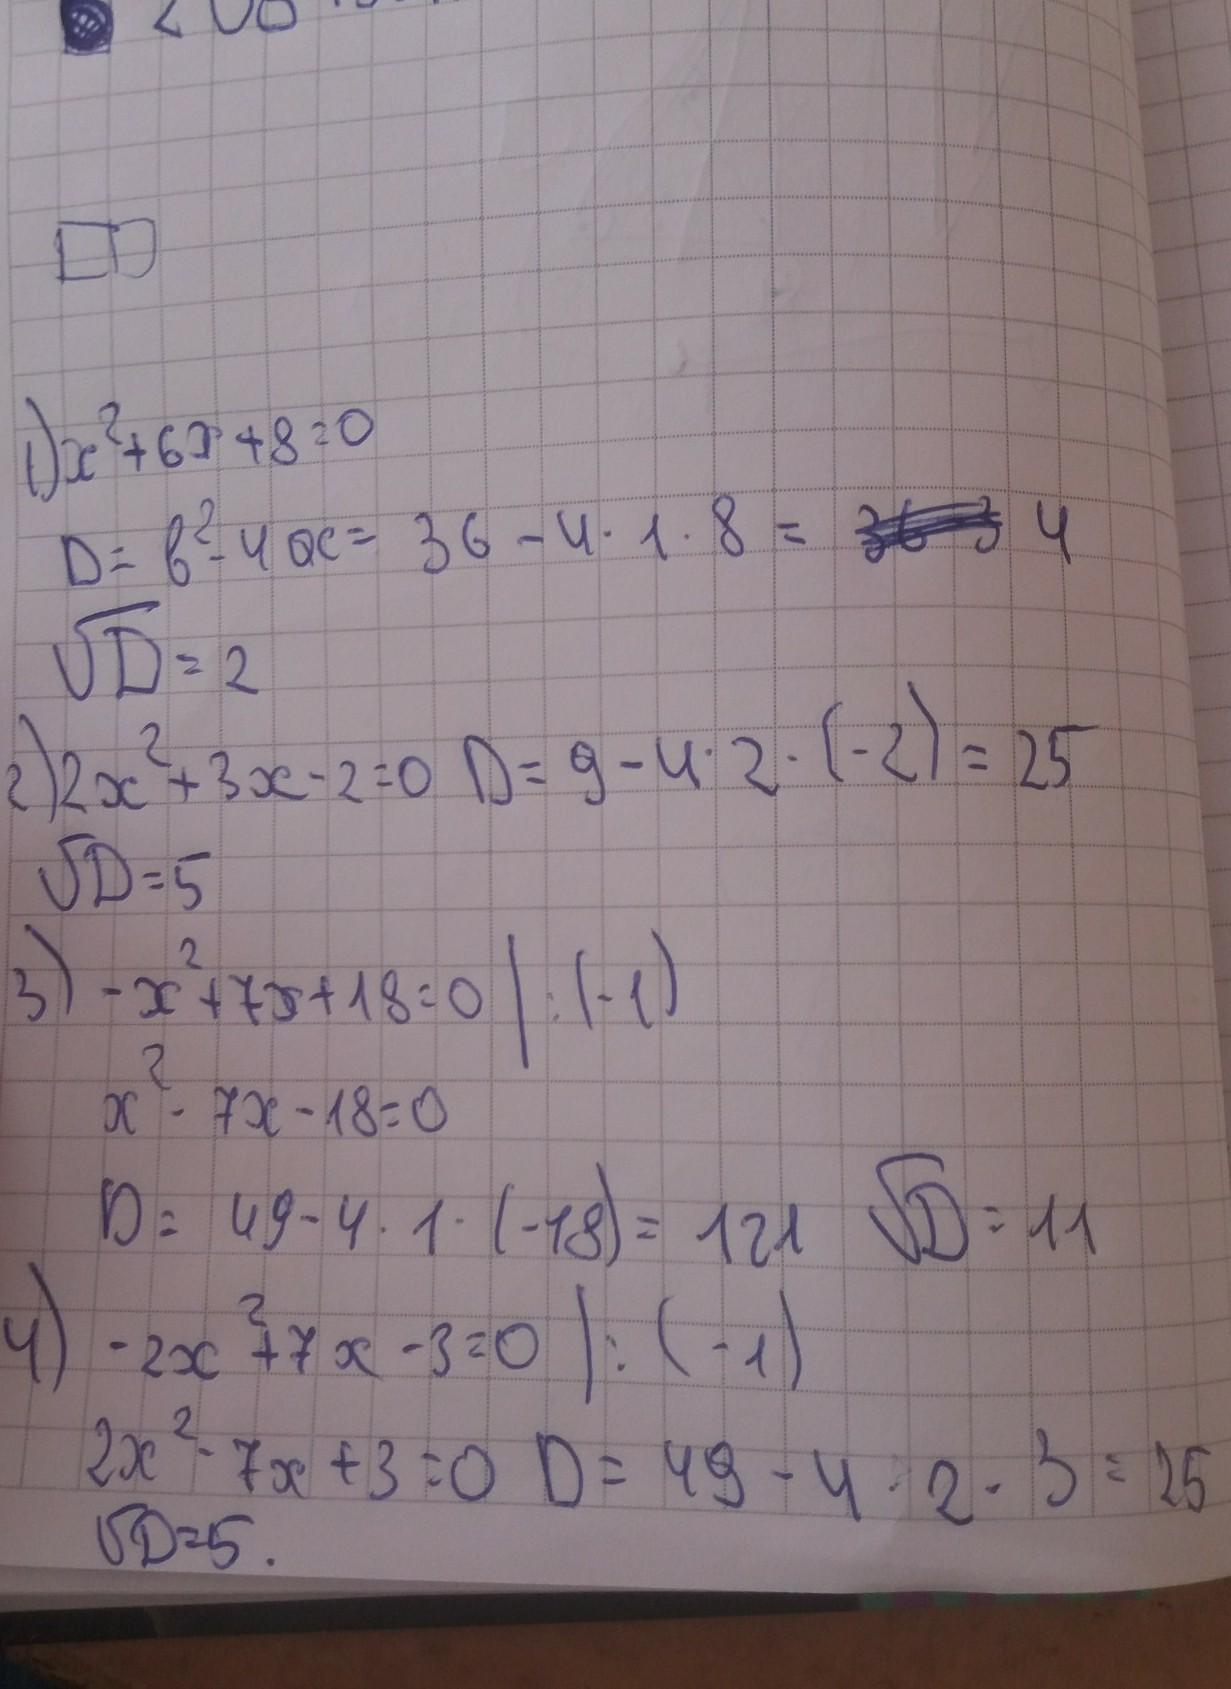 1) x²+6x+8=0
D= b²-4ac= 36-4·1·8= 4
√D=2
2) 2x²+3x-2=0 D=9-4·2·(-2)=25
√D=5
3) -x²+7x+18=0 |:(-1)
x²-7x-18=0
D= 49-4·1·(-18)=121 √D=11
4) -2x²+7x-3=0 |:(-1)
2x²-7x+3=0 D=49-4·2·3=25
√D=5.